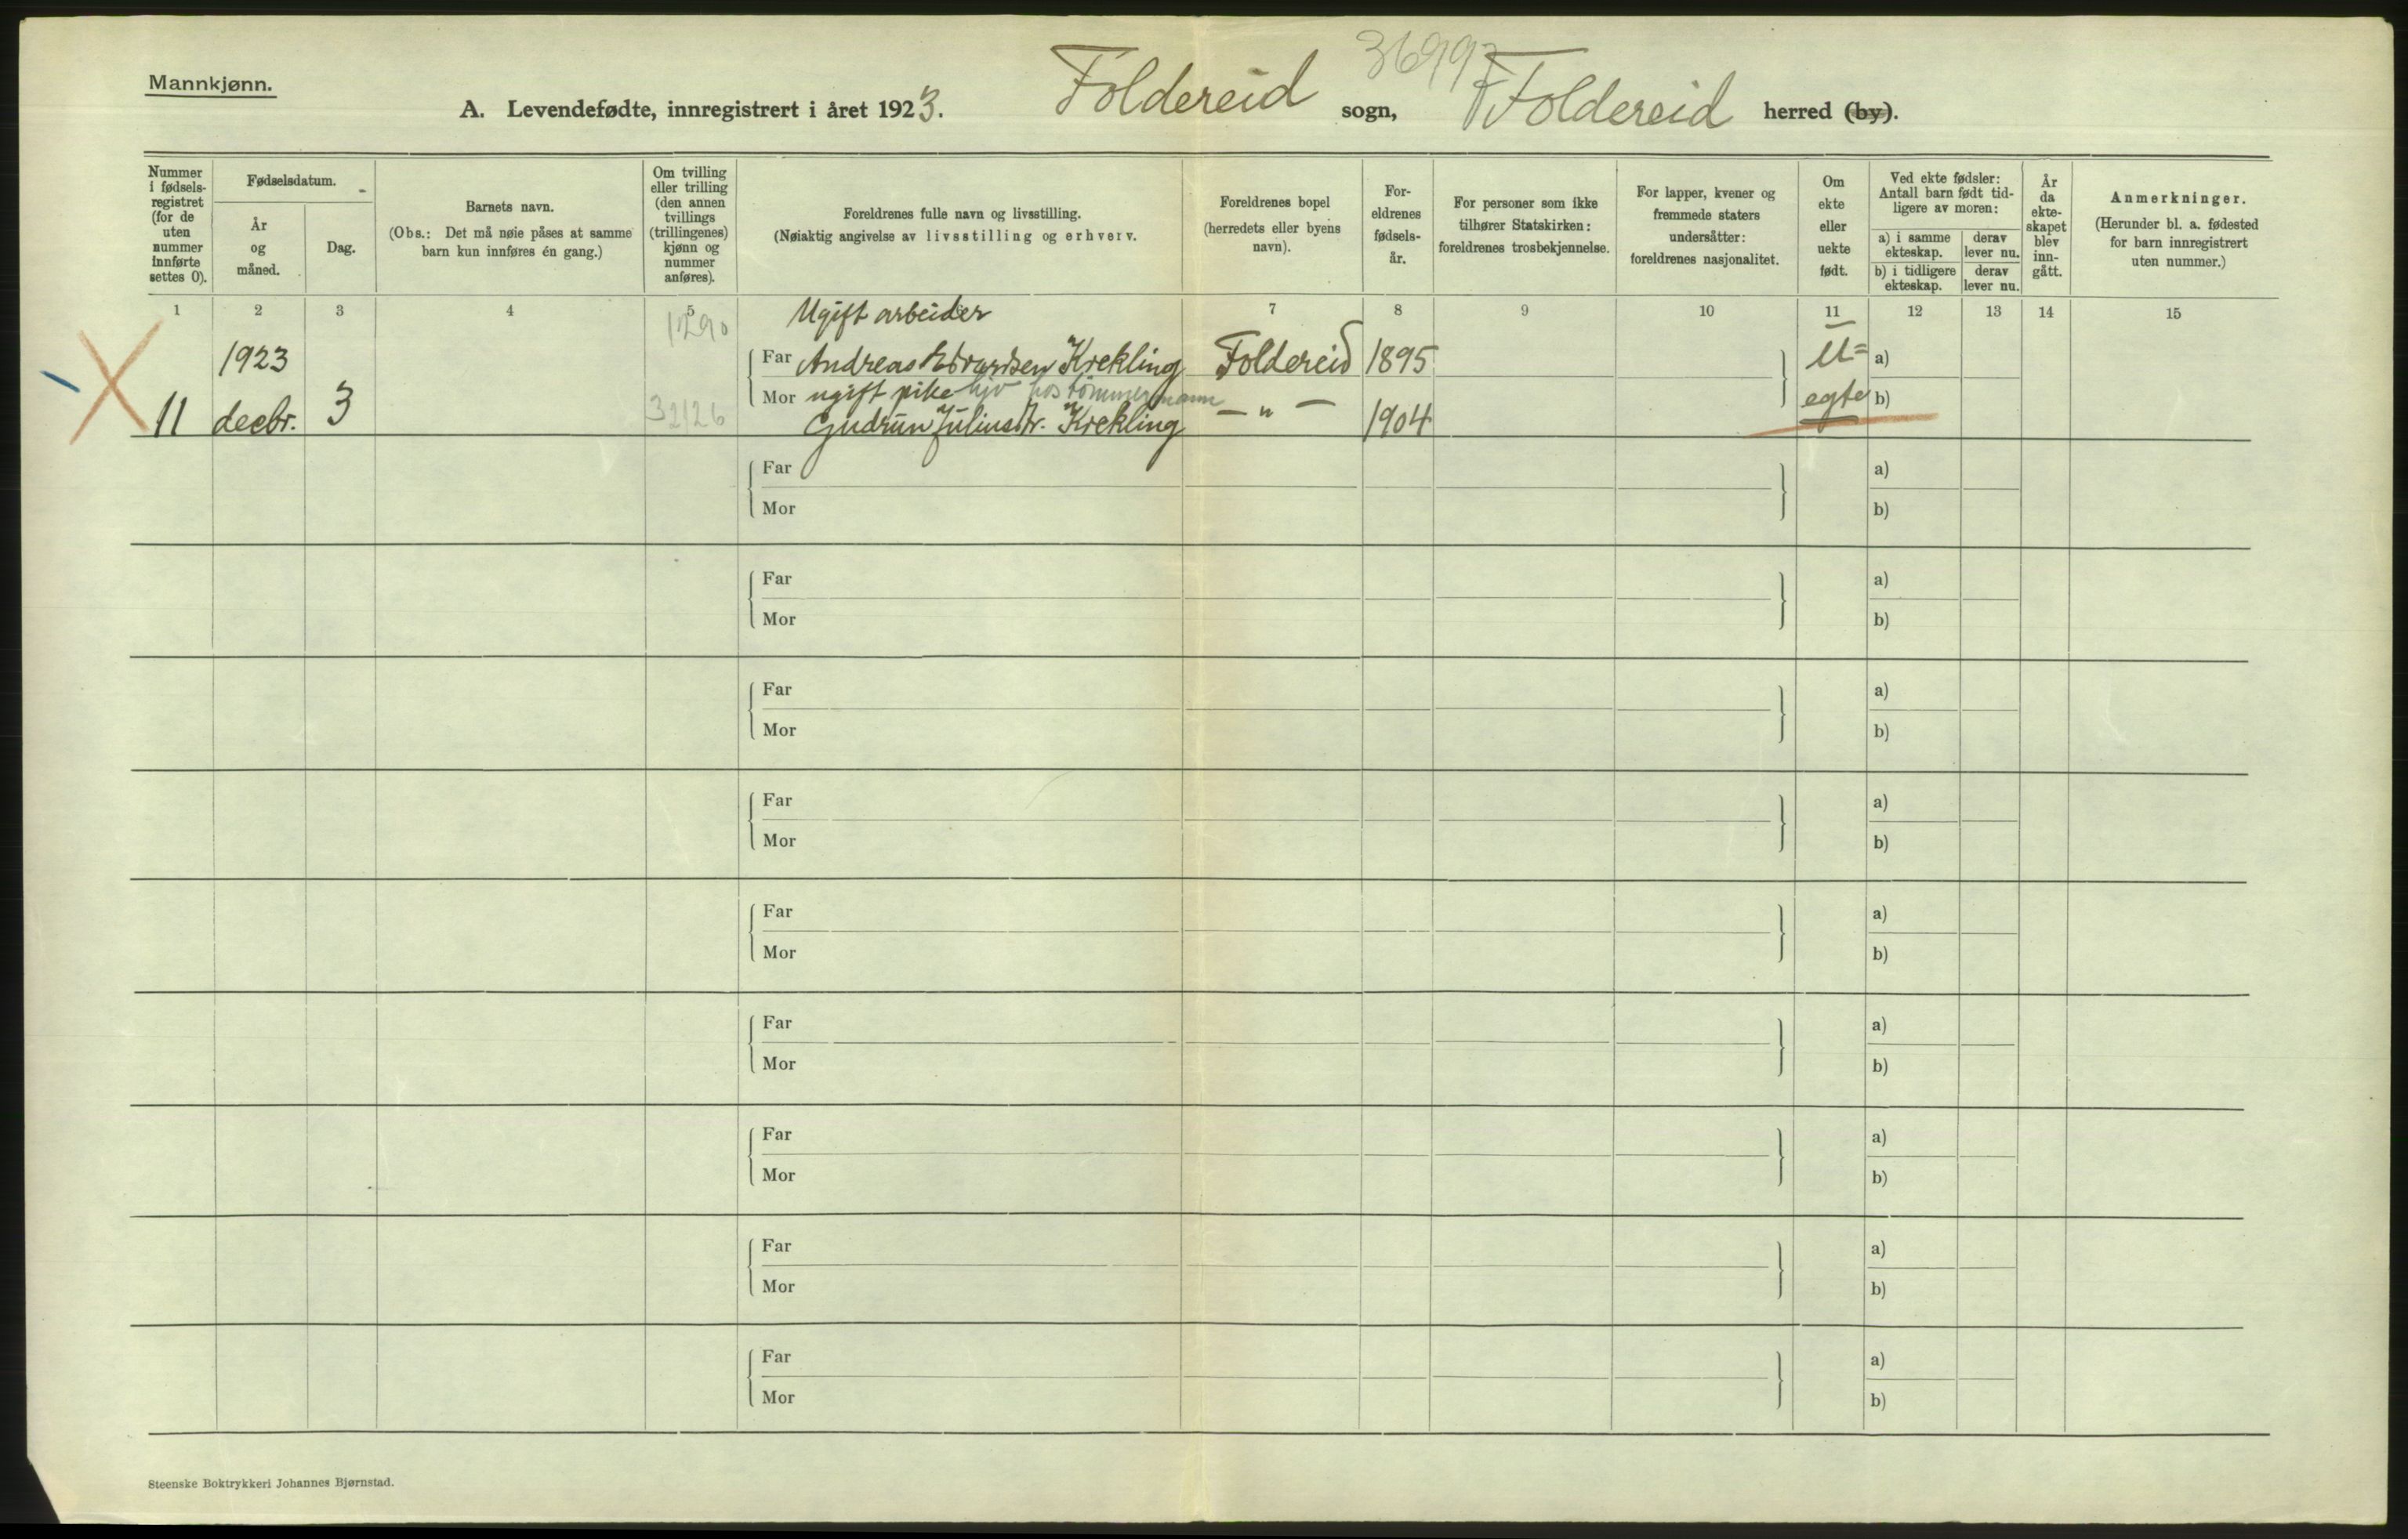 Mannkjønn.
A. Levendefødte, innregistrert i året 1923. Foldereid sogn, Foldereid herred (by).
Nummer i fødselsregistret (for de uten nummer innførte settes 0).
Fødselsdatum.
År og måned.
Dag.
Barnets navn.
(Obs.: Det må nøie påses at samme barn kun innføres én gang.)
Om tvilling eller trilling (den annen tvillings (trillingenes) kjønn og nummer anføres).
Foreldrenes fulle navn og livsstilling.
(Nøiaktig angivelse av livsstilling og erhverv.
Foreldrenes bopel (herredets eller byens navn).
Foreldrenes fødselsår.
For personer som ikke tilhører Statskirken: foreldrenes trosbekjennelse.
For lapper, kvener og fremmede staters undersåtter: foreldrenes nasjonalitet.
Om ekte eller uekte født.
Ved ekte fødsler: Antall barn født tidligere av moren:
a) i samme ekteskap. derav lever nu.
b) i tidligere ekteskap. derav lever nu.
År da ekteskapet blev inngått.
Anmerkninger.
(Herunder bl. a. fødested for barn innregistrert uten nummer.)
1 2 3 4 5 7 8 9 10 11 12 13 14 15
1290 Ugift arbeider
1923 Far Andreas Edvardsen Krekling Foldereid 1895 U= a)
Mor ugift pike hjv hos tømmermann egte b)
11 decbr. 3 Gudrun Juliusdtr. Krekling — „ — 1904
Far a)
Mor b)
Far a)
Mor b)
Far a)
Mor b)
Far a)
Mor b)
Far a)
Mor b)
Far a)
Mor b)
Far a)
Mor b)
Far a)
Mor b)
Far a)
Mor b)
Steenske Boktrykkeri Johannes Bjørnstad.